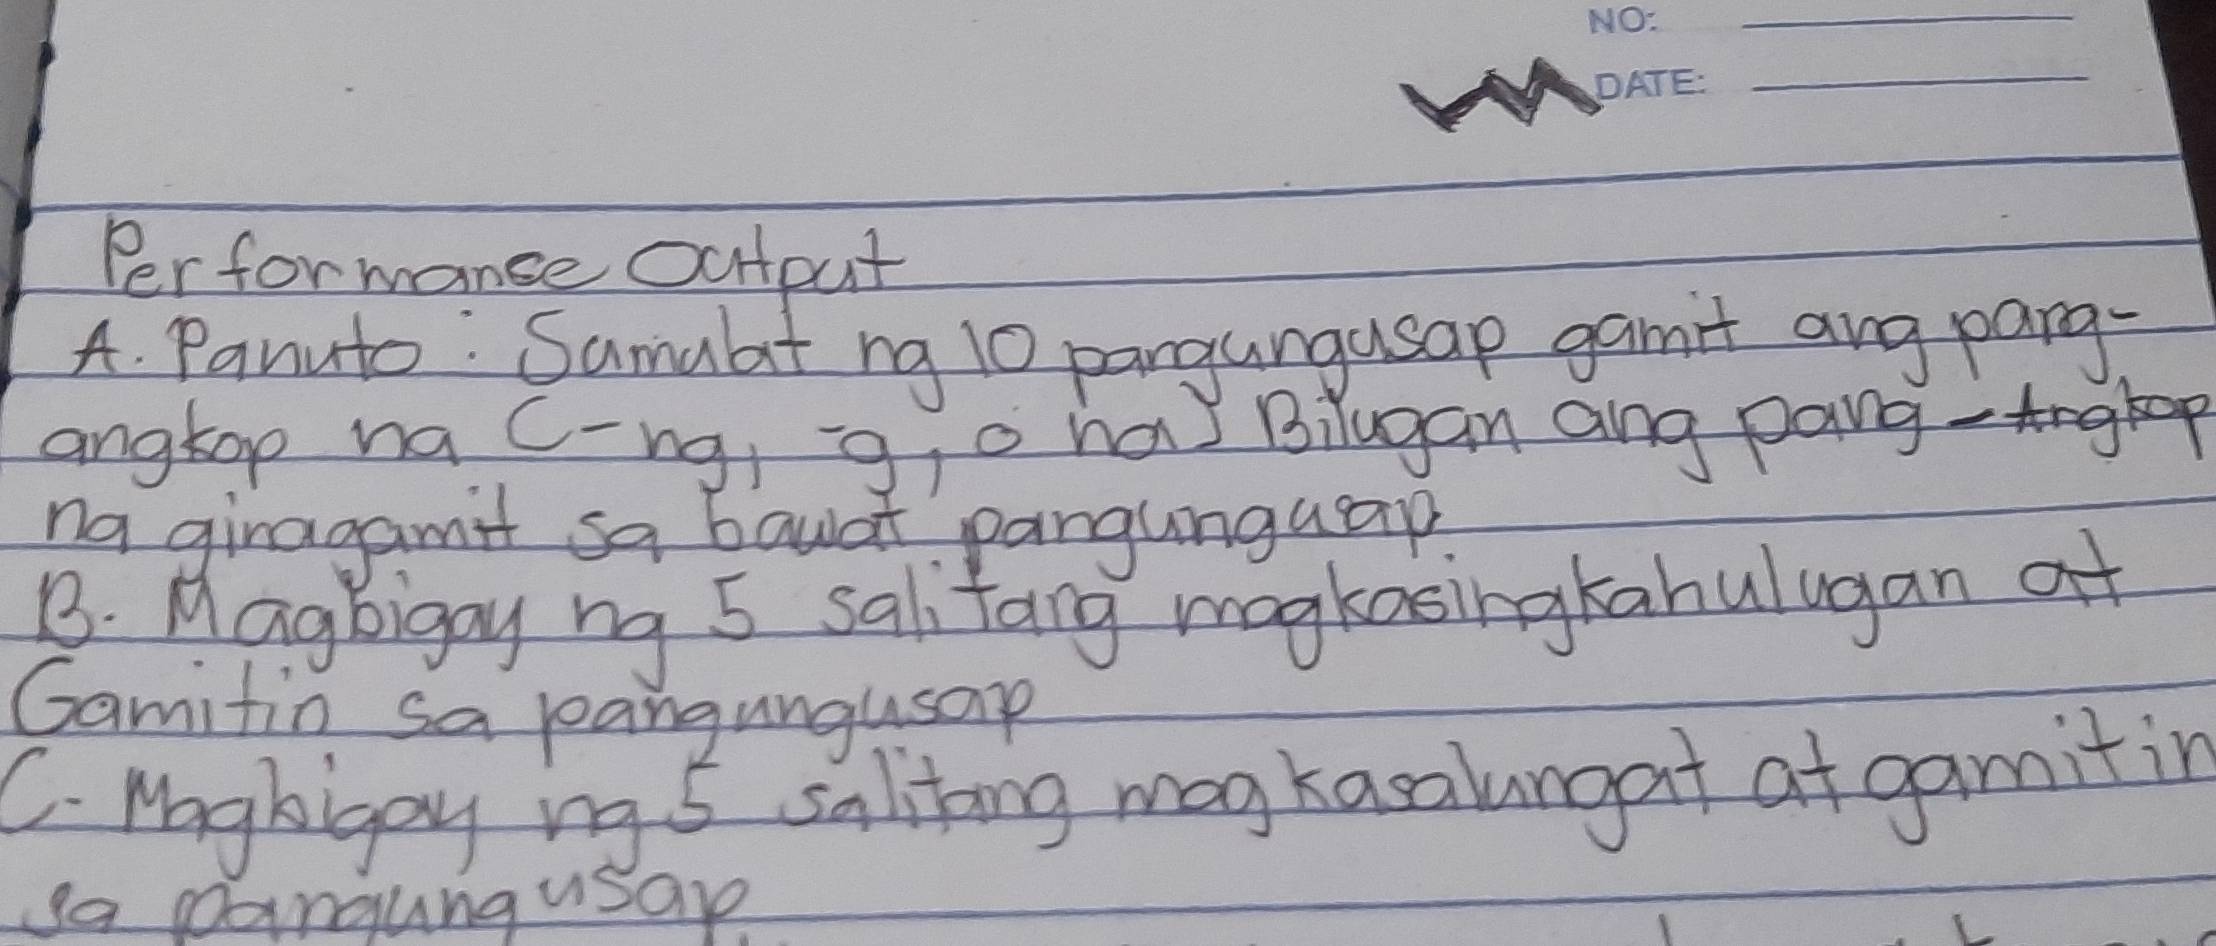 NO:
DATE:
Performanse Output
A. Panuto: Sumulat ng 10 pangungusap gamit ang pang-
angkop na (-ng, -g, o na) Bilugan ang pang-Angkop
na ginagamit sa bawat pangungusap
B. Magbigay ng 5 salitang magkasingkahulugan at
Gamitin sa pangungusap
C. Magbigay ng 5 salitang magkasalungat at gamitin
sa pangungusap